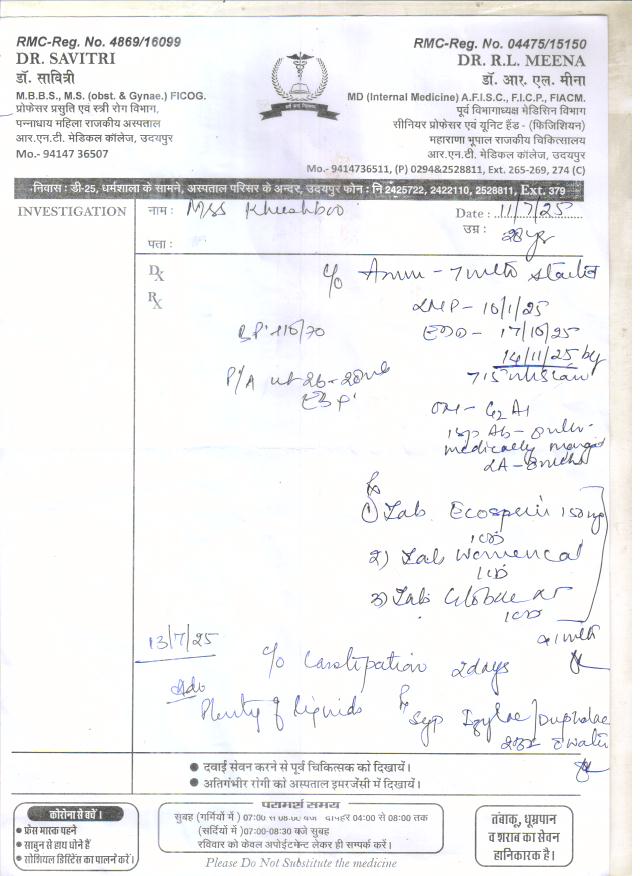 RMC-Reg. No. 4869/16099
DR. SAVITRI
डॉ. सावित्री
M.B.B.S., M.S. (obst. & Gynae.) FICOG.
प्रोफेसर प्रसुति एवं स्त्री रोग विभाग,
पन्नाधाय महिला राजकीय अस्पताल
आर.एन.टी. मेडिकल कॉलेज, उदयपुर
Mo.- 94147 36507
RMC-Reg. No. 04475/15150
DR. R.L. MEENA
डॉ. आर. एल. मीना
MD (Internal Medicine) A.F.I.S.C., F.I.C.P., FIACM.
पूर्व विभागाध्यक्ष मेडिसिन विभाग
सीनियर प्रोफेसर एवं यूनिट हैंड - (फिजिशियन)
महाराणा भूपाल राजकीय चिकित्सालय
आर.एन.टी. मेडिकल कॉलेज, उदयपुर
Mo.- 9414736511, (P) 0294&2528811, Ext. 265-269, 274 (C)
निवास : डी-25, धर्मशाला के सामने, अस्पताल परिसर के अन्दर, उदयपुर फोन : नि 2425722, 2422110, 2528811, Ext. 379
INVESTIGATION
नाम : Mrs Khushboo
Date : 11/7/25
उम्र : 28 yr
पता :
Dx
Rx
c/o Amm - 7 mth started
LMP - 10/1/25
BP 110/70
EDD - 17/10/25
14/11/25 by
P/A ut 26-28
OH - G2 A1
medically
Rx
1) Tab Ecosprin 150 mg
1 OD
2) Tab Womencal
1 OD
3) Tab Globac
1 OD
x 1 mth
13/7/25
c/o Constipation 2 days
Adv
Plenty of liquids
Rx
Syp /Duphalac
water
● दवाई सेवन करने से पूर्व चिकित्सक को दिखायें।
● अतिगंभीर रोगी को अस्पताल इमरजेंसी में दिखायें।
कोरोना से बचें।
● फ्रेस मास्क पहने
● साबुन से हाथ धोने हैं
● सोशियल डिस्टिेंस का पालना करें।
परामर्श समय
सुबह (गर्मियों में ) 07:00 से 08:00 बजे दोपहर 04:00 से 08:00 तक
(सर्दियों में )07:00-08:30 बजे सुबह
रविवार को केवल अपोईटमेन्ट लेकर ही सम्पर्क करें।
Please Do Not Substitute the medicine
तंबाकू, धूम्रपान
व शराब का सेवन
हानिकारक है।